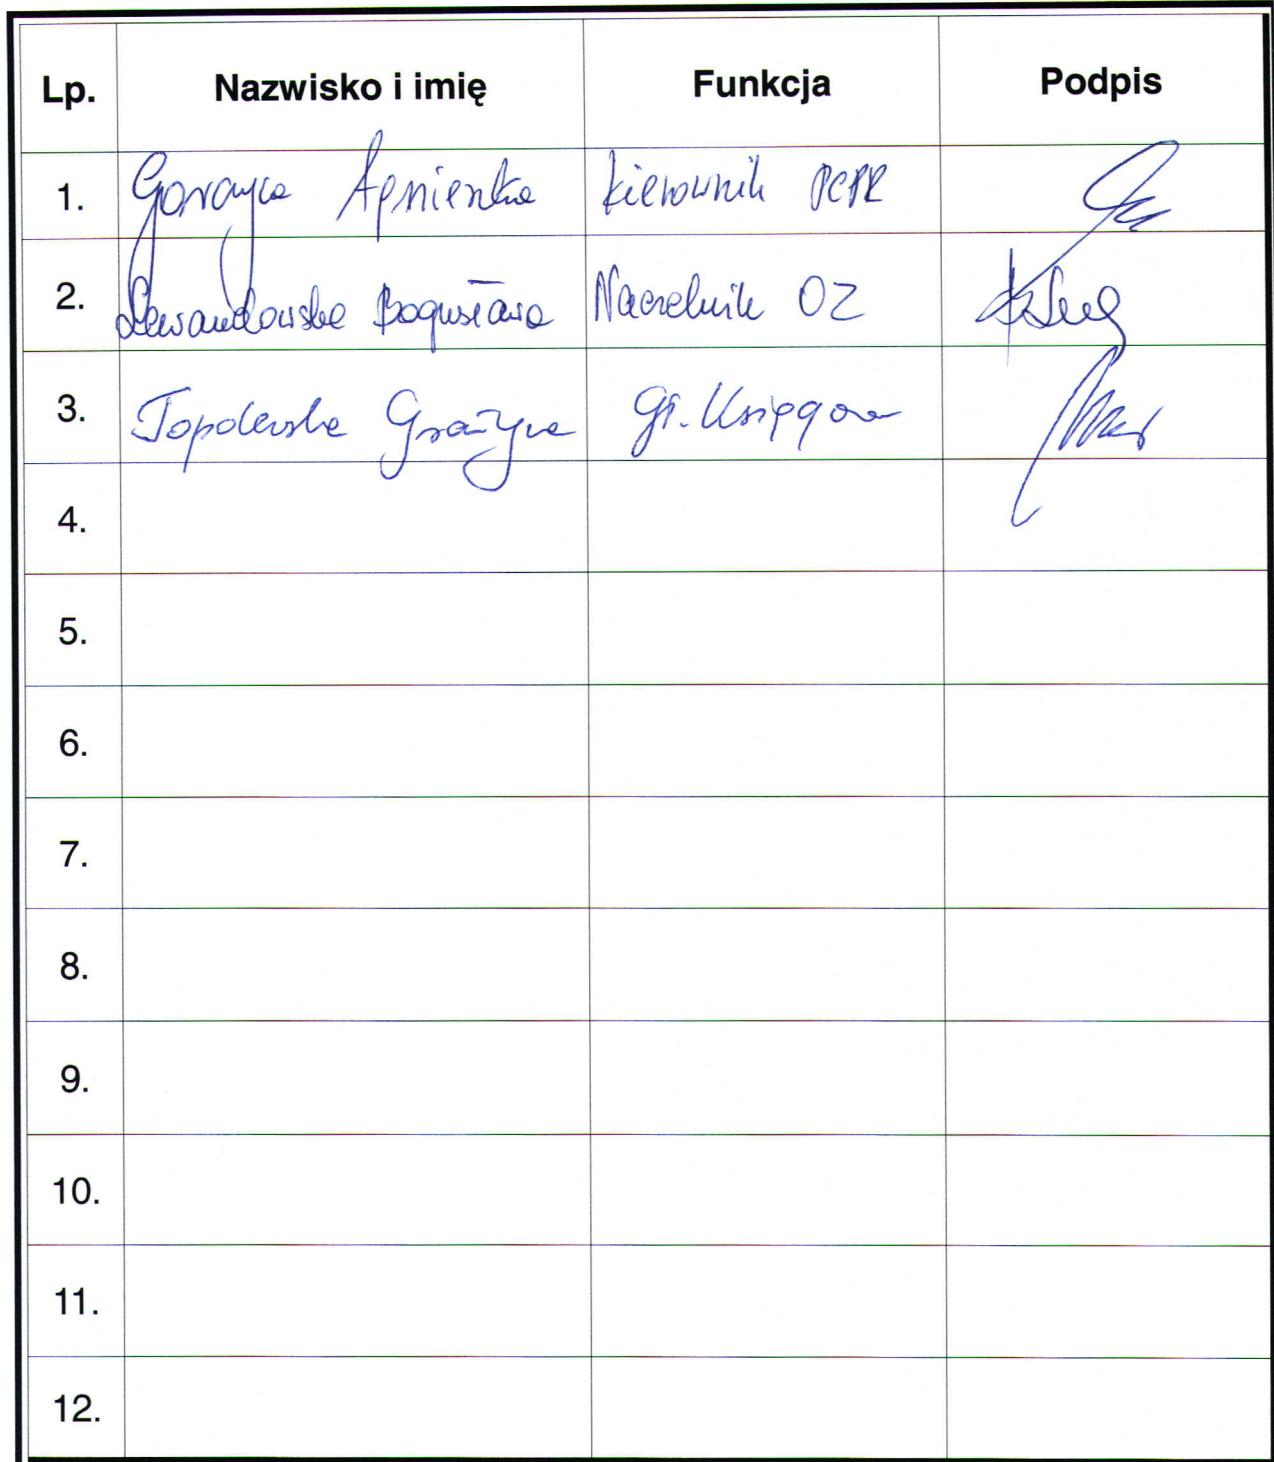 Lp. Nazwisko i imię Funkcja Podpis
1. Agnieszka Kierownik PCPR
2. Lewandowska Bogusława Naczelnik OZ
3. Topolewska Grażyna Gł. Księgowa
4.
5.
6.
7.
8.
9.
10.
11.
12.